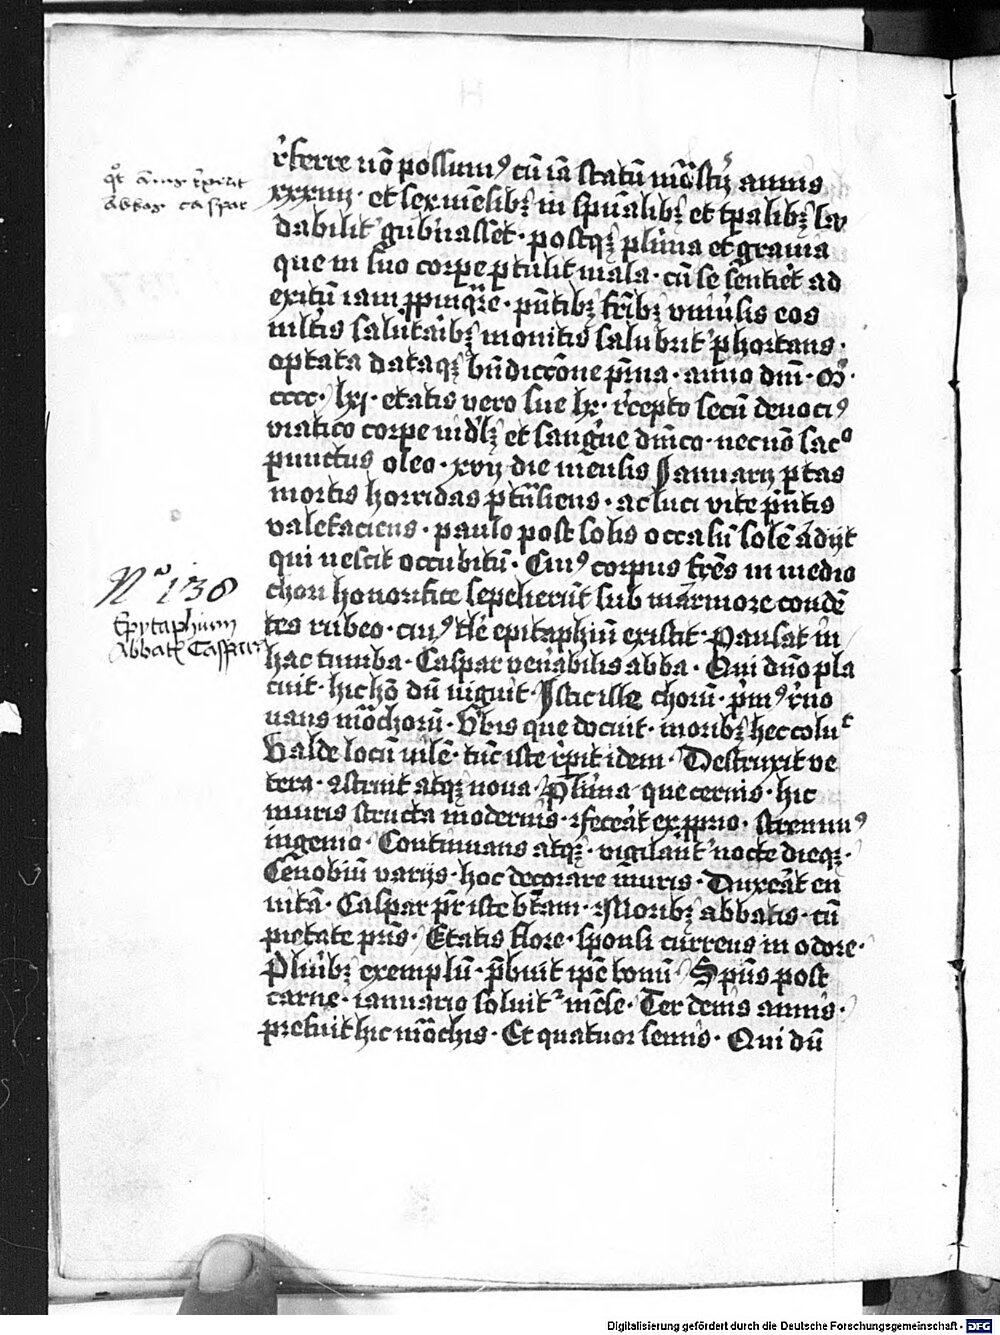 qͦt ānis rexit
abbas caspar
r̄ferre nō possumꝰ cū iā statū mōstij annis
xxxiiij · et sex mēsibꝫ in spūalibꝫ et tꝑalibꝫ lau
dabilit̕ gub̕nasset · postqꝫ plīma et grauia
que in suo corꝑe ꝑtulit mala · cū se sentiēt ad
exitū iam ꝓpinqͣre · pn̄tibꝫ fr̄ibꝫ vniūsis eos
mltis salutaībꝫ monitis salubrit̕ phortans ·
optata dataqꝫ bn̄diccōne pr̄ma · anno dn̄i · M̊ ·
cccc · lxj · etatis vero sue lx · r̄cepto secū deuociꝰ
viatico corꝑe vidꝫ et sangͥne dn̄ico · necnō sacͦ
punctus oleo · xvij die mensis Januarij ꝑtas
mortis horridas ꝑtn̄siens · ac luci vite pn̄tis
valefaciens · paulo post solis occasū solē adijt
qui nescit occubitū · Cuiꝰ corpus fr̄es in medio
chori honorifice sepelierūt sub marmore condē
tes rubeo · cuiꝰ tle epitaphiū existit · Pausat in
hac tumba · Caspar ven̄abilis abba · Qui dn̄o pla
cuit · hic hō dū viguit · Istic ille chorū · pͥmꝰ r̄no
uans mōchorū · V̄bis que docuit · moribꝫ hec coluͭ
Valde locū vilē · tūc iste r̄pit idem · Destruxit ve
tera · ꝯstruit atqꝫ noua · Plīma que cernis · hic
muris structa modernis · ꝯfecāt ex ꝓprio · strennuꝰ
ingenio · Continuans atqꝫ · vigilāūt nocte dieqꝫ ·
Cēnobiū varijs · hoc decorare muris · Duxeāt en
vitā · Caspar pr̄ iste bt̄am · Moribꝫ abbatis · cū
pietate pr̄is · Etatis flore · sponsi currens in odore ·
Pluībꝫ exemplū · p̄buit ip̄e bonū · Sp̄us post
carne · ianuario soluit̕ mēse · Ter denis annis ·
prefuit hic mōchis · Et quatuor semis · Qui dū
Nͦ 138
Epytaphium
Abbatis Casparis
Digitalisierung gefördert durch die Deutsche Forschungsgemeinschaft - DFG